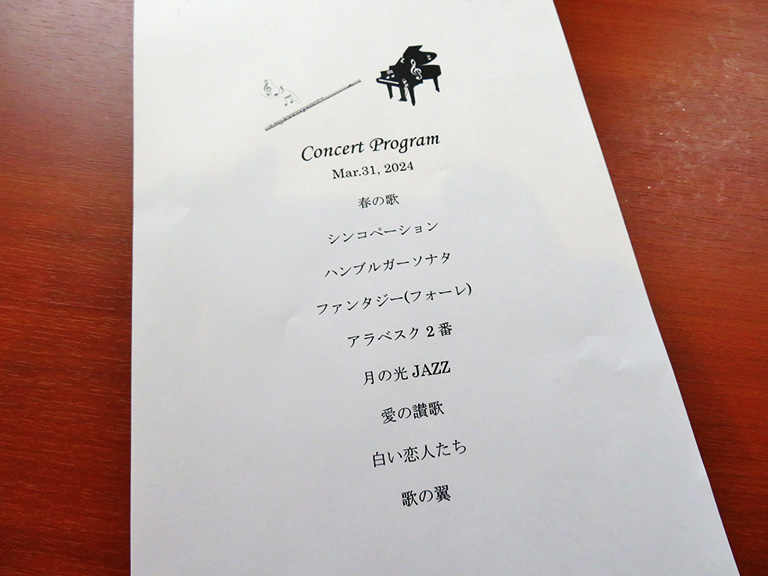 Concert Program
Mar.31, 2024
春の歌
シンコペーション
ハンブルガーソナタ
ファンタジー(フォーレ)
アラベスク2番
月の光 JAZZ
愛の讃歌
白い恋人たち
歌の翼